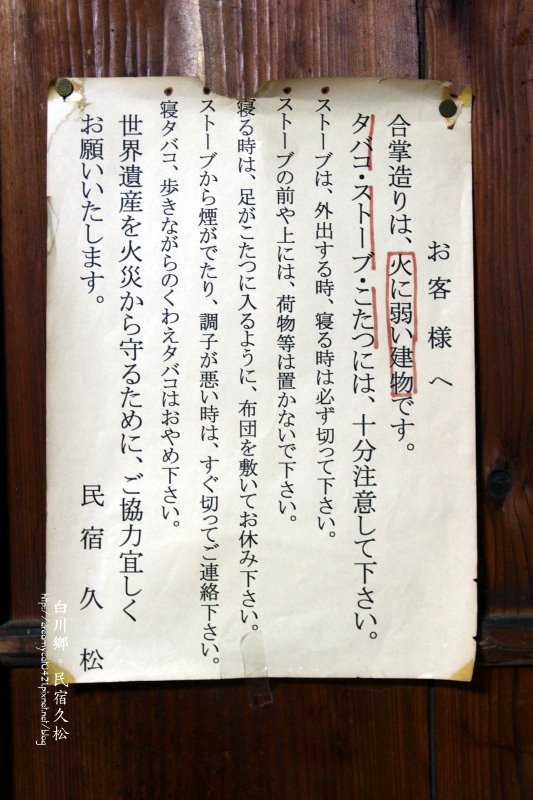 お客様へ
合掌造りは、火に弱い建物です。
タバコ・ストーブ・こたつには、十分注意して下さい。
・ストーブは、外出する時、寝る時は必ず切って下さい。
・ストーブの前や上には、荷物等は置かないで下さい。
・寝る時は、足がこたつに入るように、布団を敷いてお休み下さい。
・ストーブから煙がでたり、調子が悪い時は、すぐ切ってご連絡下さい。
・寝タバコ、歩きながらのくわえタバコはおやめ下さい。
世界遺産を火災から守るために、ご協力宜しく
お願いいたします。
民宿 久松
白川鄉。民宿久松